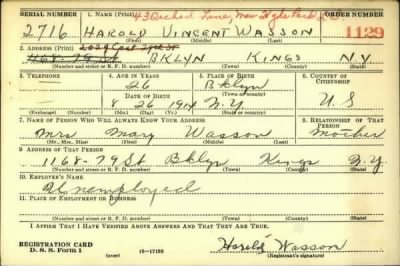 SERIAL NUMBER 1. NAME (Print) ORDER NUMBER
2716 HAROLD VINCENT WASSON 1129
(First) (Middle) (Last)
2. ADDRESS (Print)
1168-79 St BKLYN KINGS NY
(Number and street or R. F. D. number) (Town) (County) (State)
3. TELEPHONE 4. AGE IN YEARS 5. PLACE OF BIRTH 6. COUNTRY OF CITIZENSHIP
26 Bklyn
DATE OF BIRTH (Town or county)
8 26 1914 N.Y. U S
(Exchange) (Number) (Mo.) (Day) (Yr.) (State or country)
7. NAME OF PERSON WHO WILL ALWAYS KNOW YOUR ADDRESS 8. RELATIONSHIP OF THAT PERSON
Mrs Mary Wasson Mother
(Mr., Mrs., Miss) (First) (Middle) (Last)
9. ADDRESS OF THAT PERSON
1168-79 St Bklyn Kings N.Y
(Number and street or R. F. D. number) (Town) (County) (State)
10. EMPLOYER'S NAME
Unemployed
11. PLACE OF EMPLOYMENT OR BUSINESS
(Number and street or R. F. D. number) (Town) (County) (State)
I AFFIRM THAT I HAVE VERIFIED ABOVE ANSWERS AND THAT THEY ARE TRUE.
REGISTRATION CARD
D. S. S. Form 1 16-17105 Harold Wasson
(Registrant's signature)